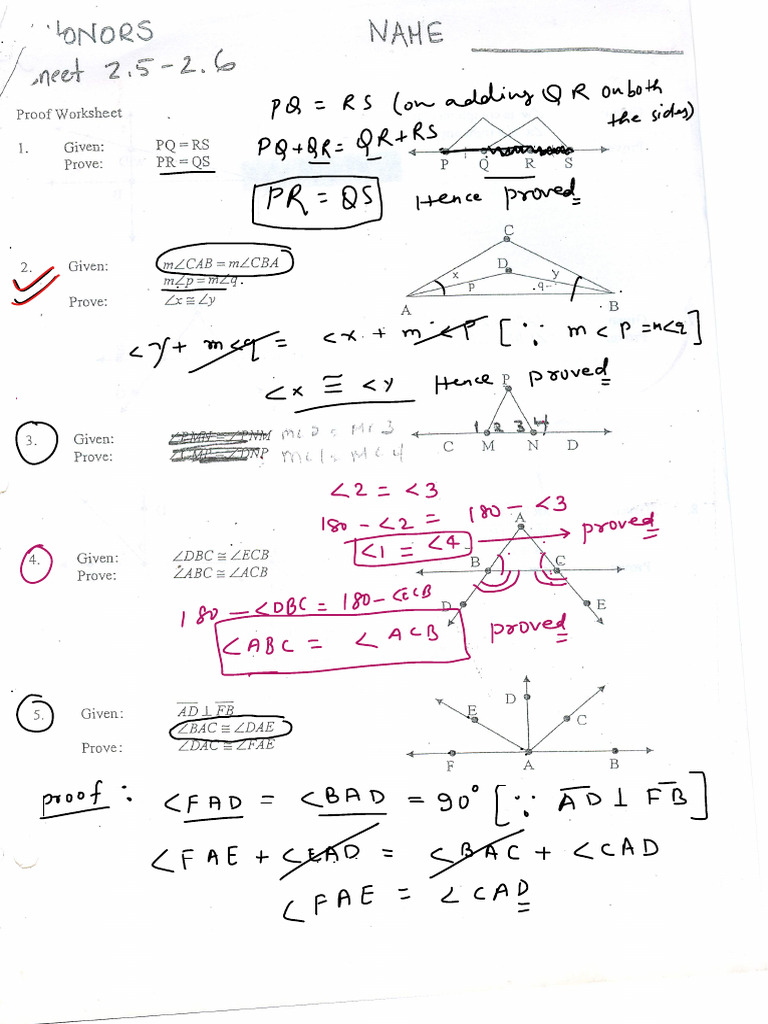 ONORS NAME
neet 2.5-2.6
Proof Worksheet
PQ = RS (on adding QR on both the sides)
1. Given: PQ = RS
Prove: PR = QS
PQ+QR = QR+RS
P Q R S
PR = QS Hence proved
C
2. Given: m∠CAB = m∠CBA
m∠p = m∠q.
Prove: ∠x ≅ ∠y
D
x y
p q
A B
∠y + m∠q = ∠x + m∠p [∵ m<p = m<q]
∠x ≅ ∠y Hence proved
P
3. Given: ∠PMN ≅ ∠PNM m∠2 = m∠3
Prove: ∠CMP ≅ ∠DNP m∠1 = m∠4
1 2 3 4
C M N D
∠2 = ∠3
180 - ∠2 = 180 - ∠3
∠1 = ∠4 proved
A
4. Given: ∠DBC ≅ ∠ECB
Prove: ∠ABC ≅ ∠ACB
B C
D E
180 - ∠DBC = 180 - ∠ECB
∠ABC = ∠ACB proved
5. Given: AD ⊥ FB
∠BAC ≅ ∠DAE
Prove: ∠DAC ≅ ∠FAE
D
E C
F A B
proof : ∠FAD = ∠BAD = 90° [∵ AD ⊥ FB]
∠FAE + ∠EAD = ∠BAC + ∠CAD
∠FAE = ∠CAD